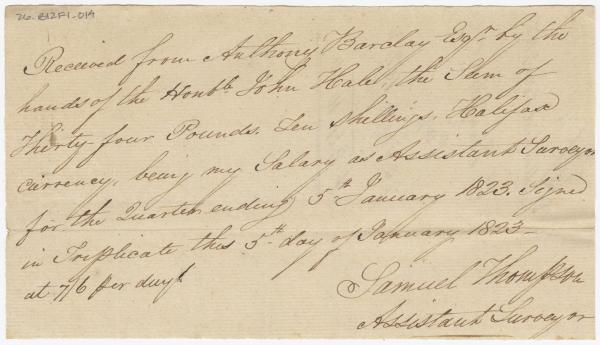 26-B12F1-014
Received from Anthony Barclay Esqr. by the
hands of the Honble. John Hale, the Sum of
Thirty four Pounds. Ten Shillings. Halifax
currency, being my Salary as Assistant Surveyor
for the Quarter ending 5th January 1823. Signed
in Triplicate this 5th day of January 1823-
at 7/6 per day
Samuel Thompson
Assistant Surveyor